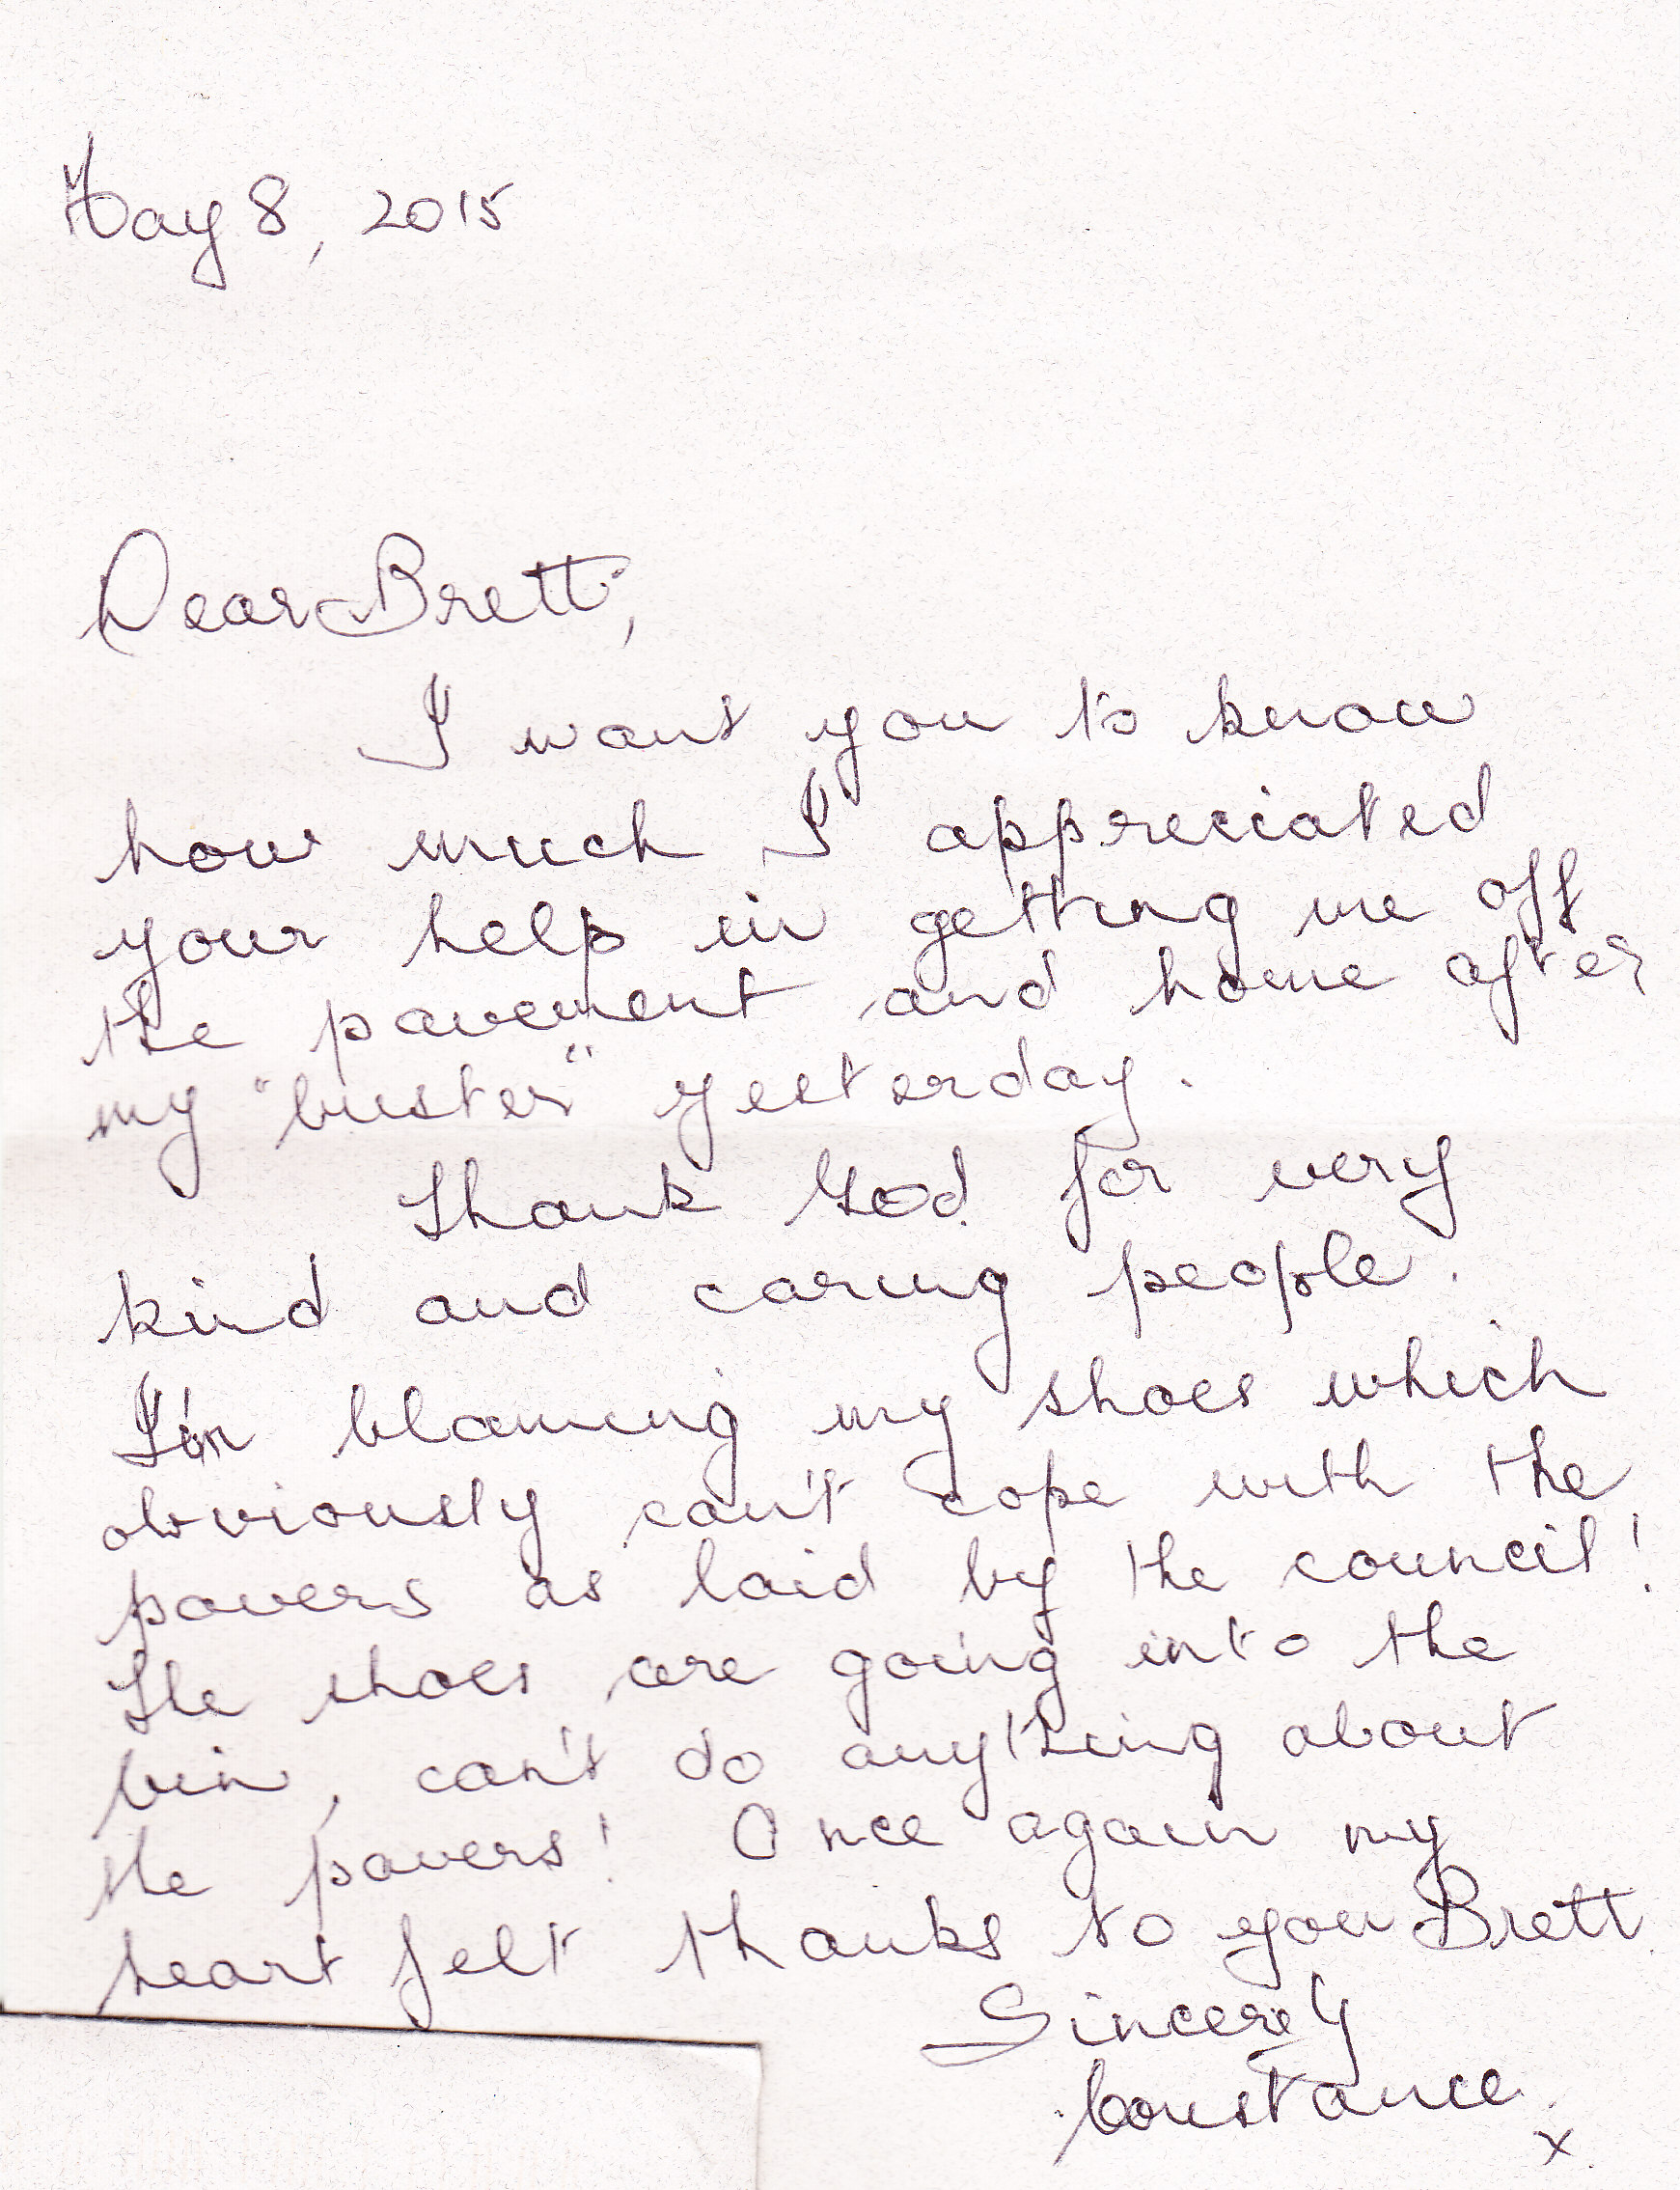 May 8, 2015
Dear Brett,
I want you to know
how much I appreciated
your help in getting me off
the pavement and home after
my "buster" yesterday.
Thank God for very
kind and caring people.
I'm blaming my shoes which
obviously can't cope with the
pavers as laid by the council!
The shoes are going into the
bin, can't do anything about
the pavers! Once again my
heart felt thanks to you Brett
Sincerely
Constance.
x